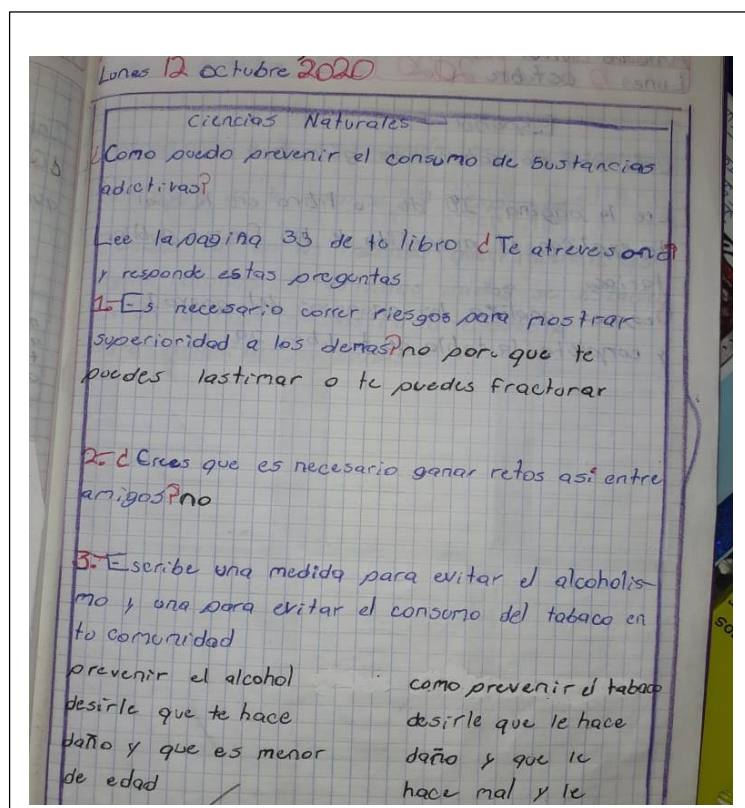 Lunes 12 octubre 2020
Ciencias Naturales
¿Como puedo prevenir el consumo de sustancias
adictivas?
Lee la pagina 33 de tu libro ¿Te atreves ona?
y responde estas preguntas
1.- Es necesario correr riesgos para mostrar
superioridad a los demas? no por que te
puedes lastimar o te puedes fracturar
2.- ¿Crees que es necesario ganar retos asi entre
amigos? no
3.- Escribe una medida para evitar el alcoholis-
mo y una para evitar el consumo del tabaco en
tu comunidad
prevenir el alcohol
desirle que te hace
daño y que es menor
de edad
como prevenir el tabaco
desirle que le hace
daño y que le
hace mal y le